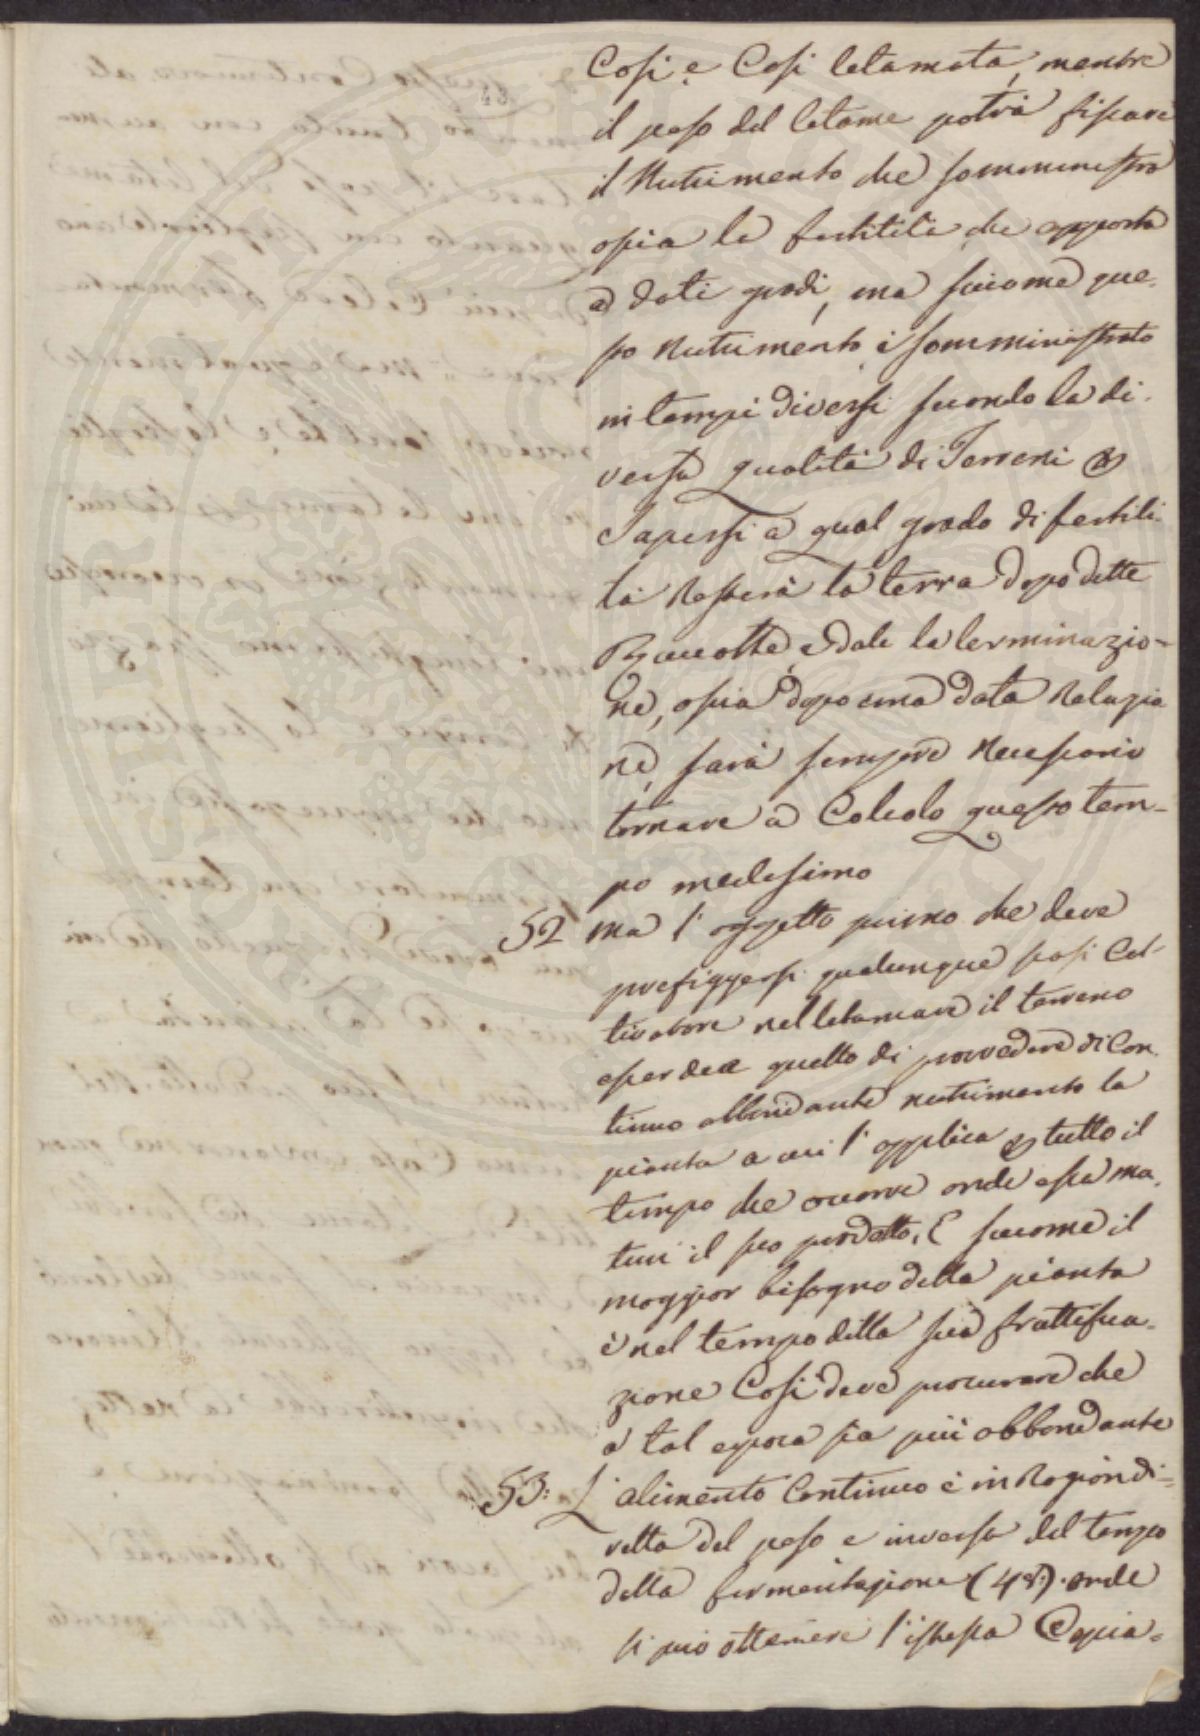 Cosi e Cosi letamata, mentre
il peso del letame potrà fissare
il Nutrimento che somministra
ossia la fertilità che apporta
a dati gradi, ma siccome que-
sto Nutrimento è somministrato
in tempi diversi secondo la di-
versa qualità di Terreni &
Sapersi a qual grado di fertili-
tà Resterà la terra dopo dette
Raccolte, e dale la lerminazio-
ne, ossia dopo una data Relazio
ne, sarà sempre Necessario
tornare a Calcolo questo tem-
po medesimo
52 ma l'oggetto primo che deve
prefiggersi qualunque siasi Col-
tivatore nel letamare il terreno
esser dee quello di provvedere di Con-
tinuo abbondante nutrimento la
pianta a cui l'applica & tutto il
tempo che occorre onde essa ma-
turi il suo prodotto, E siccome il
maggior bisogno della pianta
è nel tempo della sua fruttifica-
zione Cosi deve procurare che
a tal epoca sia più abbondante
53: L'alimento Continuo è in Ragion di-
retta del peso e inversa del tempo
della fermentazione (48:). onde
si può ottenere l'istessa Copia=